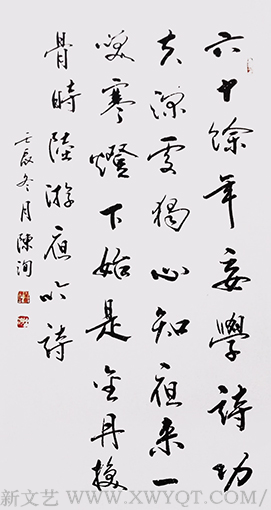 六十餘年妄學詩功
夫深處獨心知夜来一
笑寒燈下始是金丹換
骨時陸游夜吟詩
壬辰冬月陳洵
新文艺 WWW.XWYQT.COM/